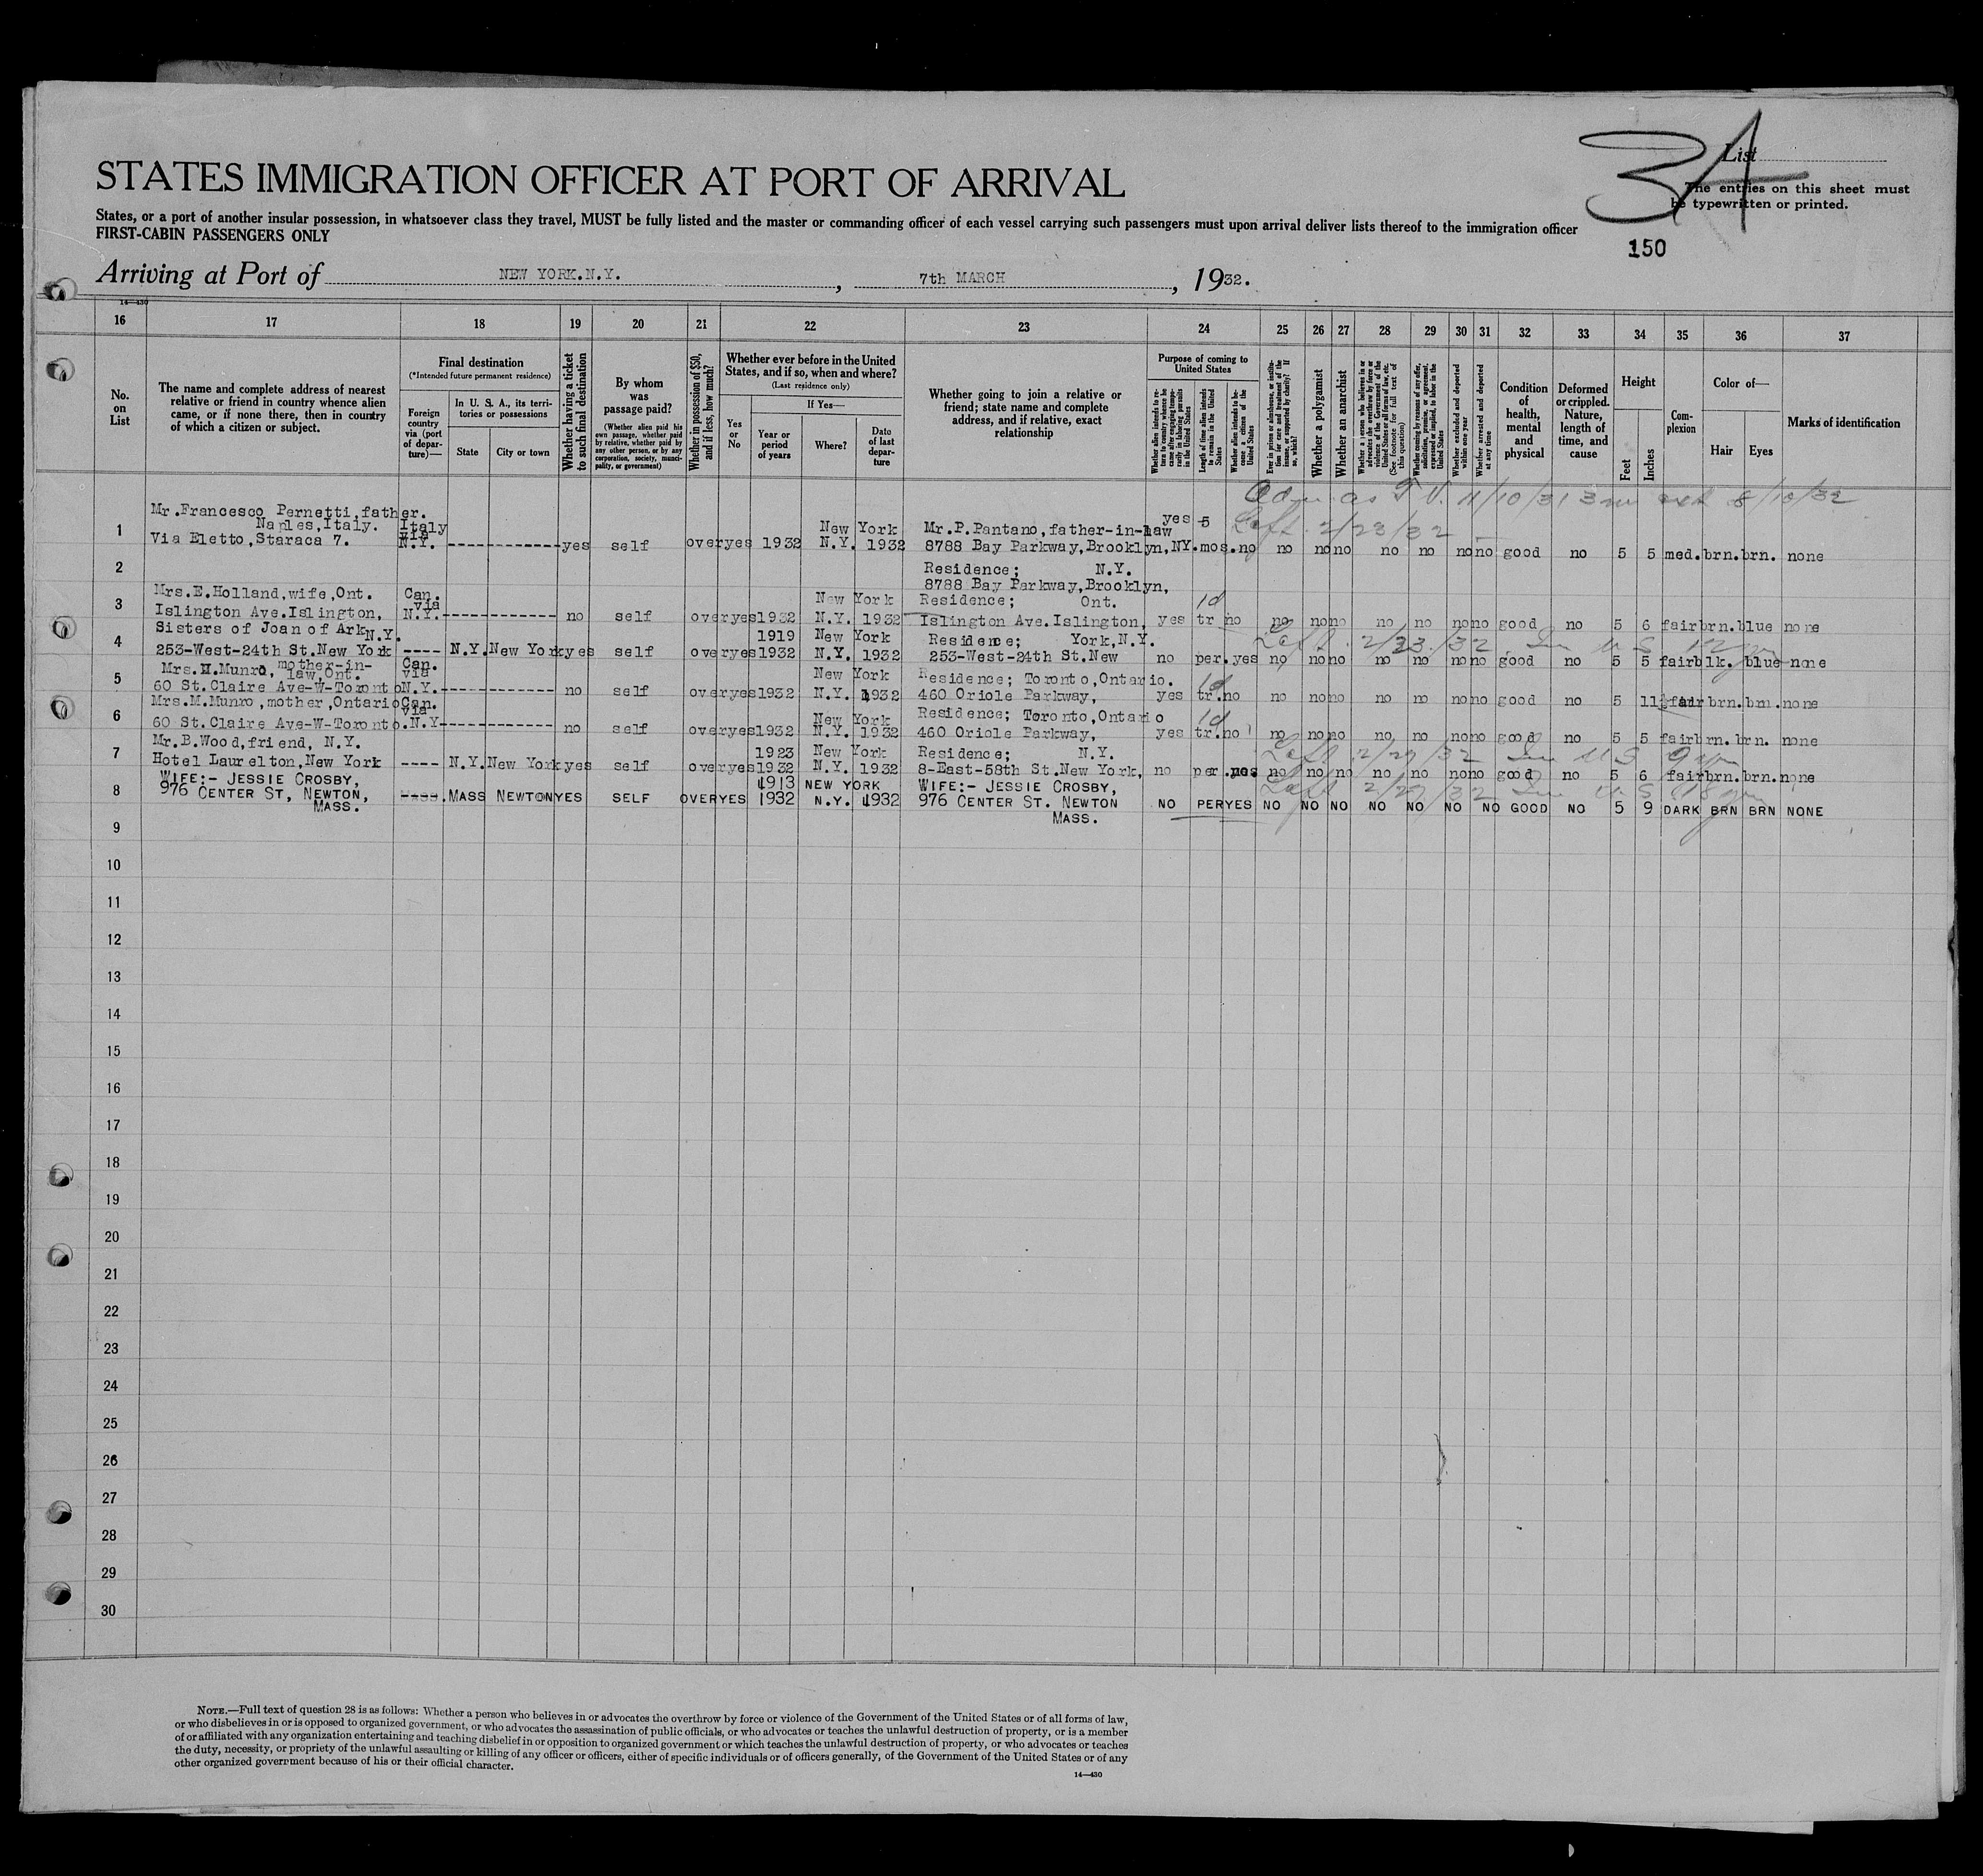 STATES IMMIGRATION OFFICER AT PORT OF ARRIVAL
States, or a port of another insular possession, in whatsoever class they travel, MUST be fully listed and the master or commanding officer of each vessel carrying such passengers must upon arrival deliver lists thereof to the immigration officer
FIRST-CABIN PASSENGERS ONLY
3A
List
The entries on this sheet must
be typewritten or printed.
150
Arriving at Port of NEW YORK.N.Y., 7th MARCH, 1932.
14—430
16 17 18 19 20 21 22 23 24 25 26 27 28 29 30 31 32 33 34 35 36 37
No. on List
The name and complete address of nearest
relative or friend in country whence alien
came, or if none there, then in country
of which a citizen or subject.
Final destination
(*Intended future permanent residence)
Foreign country via (port of departure)—
In U. S. A., its territories or possessions
State
City or town
Whether having a ticket to such final destination
By whom was passage paid?
(Whether alien paid his own passage, whether paid by relative, whether paid by any other person, or by any corporation, society, municipality, or government)
Whether in possession of $50, and if less, how much?
Whether ever before in the United States, and if so, when and where?
(Last residence only)
Yes or No
If Yes—
Year or period of years
Where?
Date of last departure
Whether going to join a relative or
friend; state name and complete
address, and if relative, exact
relationship
Purpose of coming to United States
Whether alien intends to return to country whence he came after engaging temporarily in laboring pursuits in the United States
Length of time alien intends to remain in the United States
Whether alien intends to become a citizen of the United States
Ever in prison or almshouse, or institution for care and treatment of the insane, or supported by charity? If so, which?
Whether a polygamist
Whether an anarchist
Whether a person who believes in or advocates the overthrow by force or violence of the Government of the United States or all forms of law, etc. (See footnote for full text of this question)
Whether coming by reason of any offer, solicitation, promise, or agreement, expressed or implied, to labor in the United States
Whether excluded and deported within one year
Whether arrested and deported at any time
Condition of health, mental and physical
Deformed or crippled. Nature, length of time, and cause
Height
Feet
Inches
Complexion
Color of—
Hair
Eyes
Marks of identification
Adm. as T.V. 11/10/31 3 ext 8/10/32
Left 2/23/32
1 Mr.Francesco Pernetti,father. Naples,Italy. Via Eletto,Staraca 7. Italy via N.Y. ---- yes self over yes 1932 New York N.Y. 1932 Mr.P.Pantano,father-in-law 8788 Bay Parkway,Brooklyn,NY. yes 5 mos. no no no no no no no no good no 5 5 med. brn. brn. none
2 Residence; N.Y. 8788 Bay Parkway,Brooklyn,
3 Mrs.E.Holland,wife,Ont. Islington Ave.Islington, Can. via N.Y. ---- no self over yes 1932 New York N.Y. 1932 Residence; Ont. Islington Ave.Islington, yes 1d tr no no no no no no no no good no 5 6 fair brn. blue none
Left 2/23/32 In U S 12 yrs
4 Sisters of Joan of Ark N.Y. 253-West-24th St.New York ---- N.Y. New York yes self over yes 1919 1932 New York N.Y. 1932 Residence; York,N.Y. 253-West-24th St.New no per. yes no no no no no no no good no 5 5 fair blk. blue none
5 Mrs.H.Munro, mother-in-law,Ont. 60 St.Claire Ave-W-Toronto Can. via N.Y. ---- no self over yes 1932 New York N.Y. 1932 Residence; Toronto,Ontario. 460 Oriole Parkway, yes 1d tr. no no no no no no no no good no 5 11½ fair brn. brn. none
6 Mrs.M.Munro,mother,Ontario 60 St.Claire Ave-W-Toronto. Can. via N.Y ---- no self over yes 1932 New York N.Y. 1932 Residence; Toronto,Ontario 460 Oriole Parkway, yes 1d tr. no no no no no no no no good no 5 5 fair brn. brn. none
Left 2/27/32 In U S 9 yrs
7 Mr.B.Wood,friend, N.Y. Hotel Laurelton,New York ---- N.Y. New York yes self over yes 1923 1932 New York N.Y. 1932 Residence; N.Y. 8-East-58th St.New York, no per. yes no no no no no no no good no 5 6 fair brn. brn. none
Left 2/27/32 In U S 18 yrs
8 WIFE:- JESSIE CROSBY, 976 CENTER ST, NEWTON, MASS. MASS. MASS NEWTON YES SELF OVER YES 1913 1932 NEW YORK N.Y. 1932 WIFE:- JESSIE CROSBY, 976 CENTER ST. NEWTON MASS. NO PER YES NO NO NO NO NO NO NO GOOD NO 5 9 DARK BRN BRN NONE
9
10
11
12
13
14
15
16
17
18
19
20
21
22
23
24
25
26
27
28
29
30
NOTE.—Full text of question 28 is as follows: Whether a person who believes in or advocates the overthrow by force or violence of the Government of the United States or of all forms of law,
or who disbelieves in or is opposed to organized government, or who advocates the assassination of public officials, or who advocates or teaches the unlawful destruction of property, or is a member
of or affiliated with any organization entertaining and teaching disbelief in or opposition to organized government or which teaches the unlawful destruction of property, or who advocates or teaches
the duty, necessity, or propriety of the unlawful assaulting or killing of any officer or officers, either of specific individuals or of officers generally, of the Government of the United States or of any
other organized government because of his or their official character.
14—430